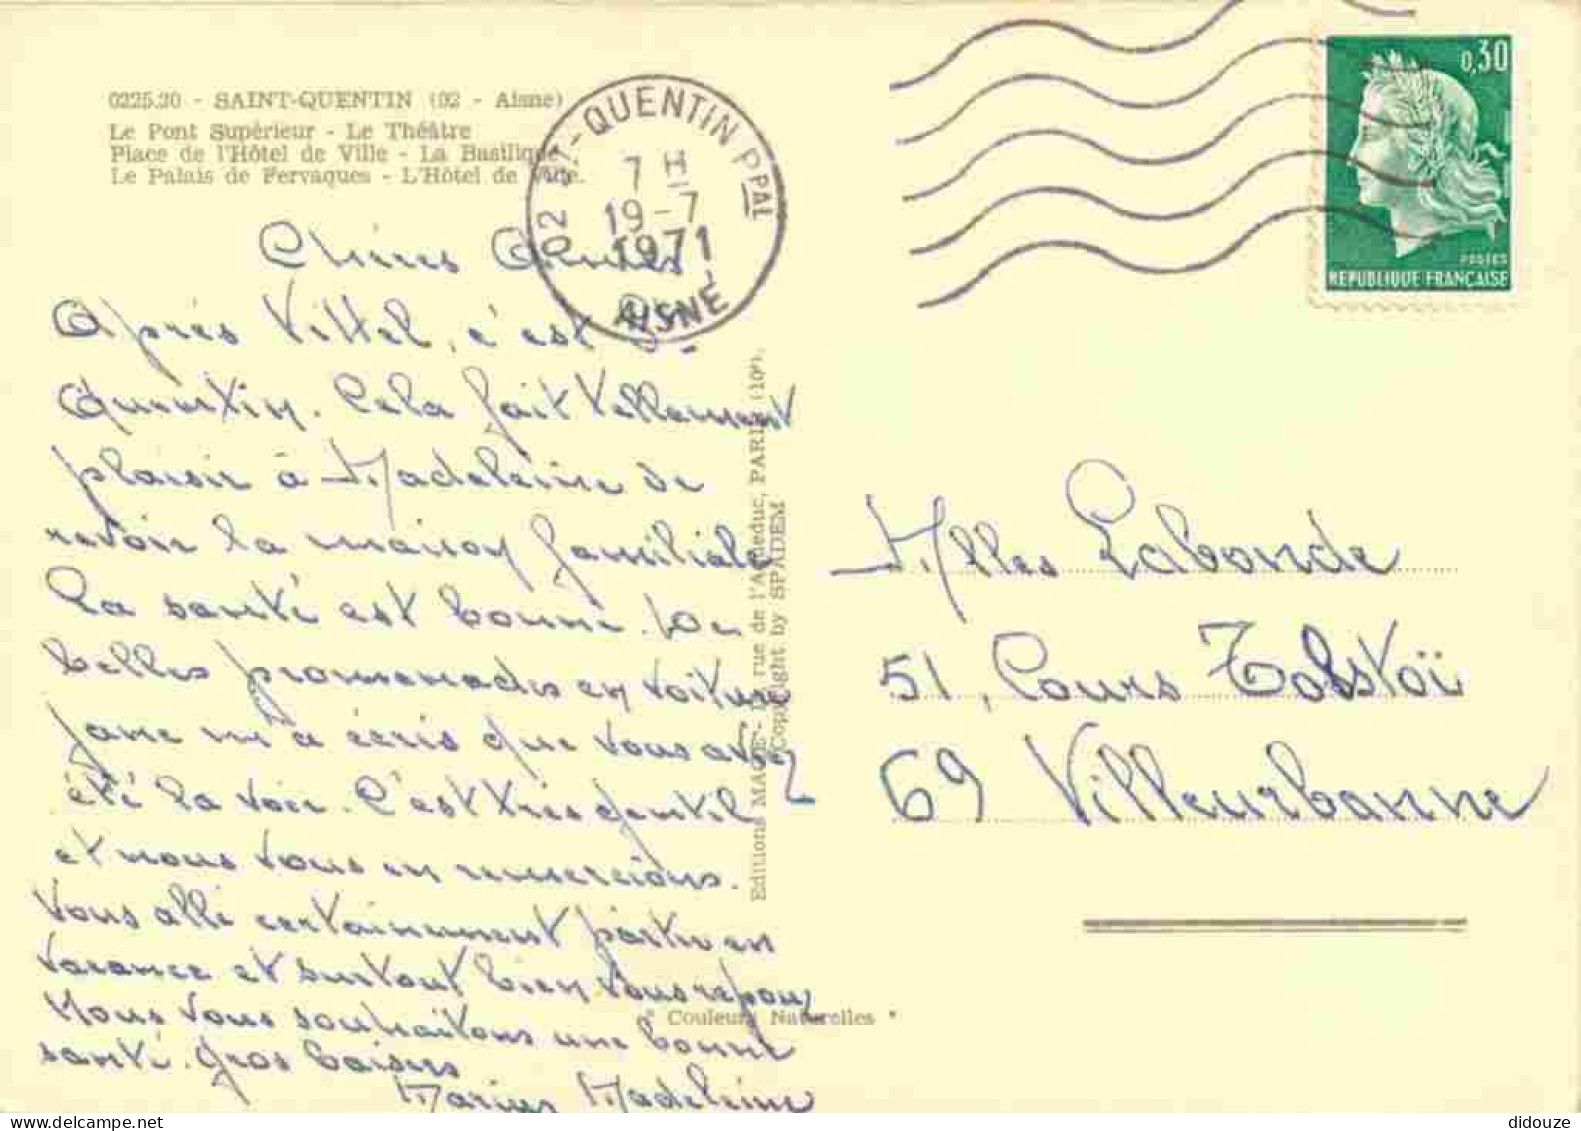 0225.20 - SAINT-QUENTIN (02 - Aisne)
Le Pont Supérieur - Le Théâtre
Place de l'Hôtel de Ville - La Basilique
Le Palais de Fervaques - L'Hôtel de Ville.
02 ST-QUENTIN PPAL
7 H
19-7
1971
AISNE
0,30
POSTES
REPUBLIQUE FRANÇAISE
Chères Amies
Après Vittel, c'est St-
Quentin. Cela fait tellement
plaisir à Madeleine de
revoir la maison familiale
La santé est bonne. De
belles promenades en voiture
Jane m'a écris que vous avez
été la voir. C'est très gentil
et nous vous en remercions.
Vous allé certainement partir en
vacance et surtout bien vous reposez
Nous vous souhaitons une bonne
santé. Gros baisers
Marius Madeleine
Editions MAGE - rue de l'Aqueduc, PARIS (10e).
Copyright by SPADEM
" Couleurs Naturelles "
Mlles Labonde
51, Cours Tolstoï
69 Villeurbanne
delcampe.net
didouze